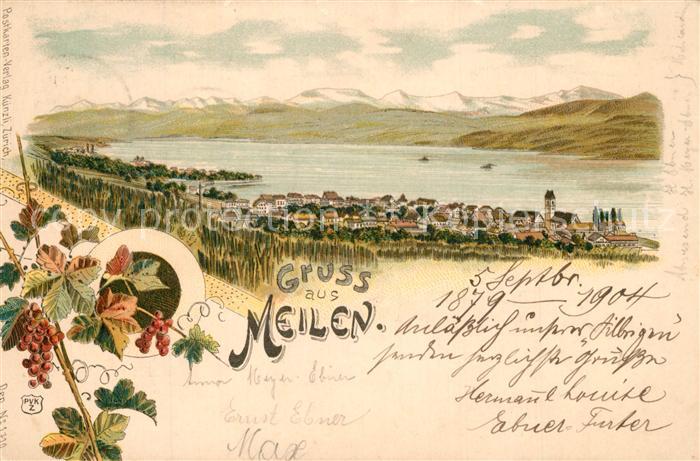 Postkarten-Verlag Künzli, Zürich.
Dep. No 1310
PVK
Z
Gruss
aus
MEILEN.
5 Septbr.
1879 — 1904
Anläßlich unserer Silbrigen
senden herzlichste Grüße
Hermann Louise
Ebner-Furter
Anna Meyer-Ebner
Ernst Ebner
Max